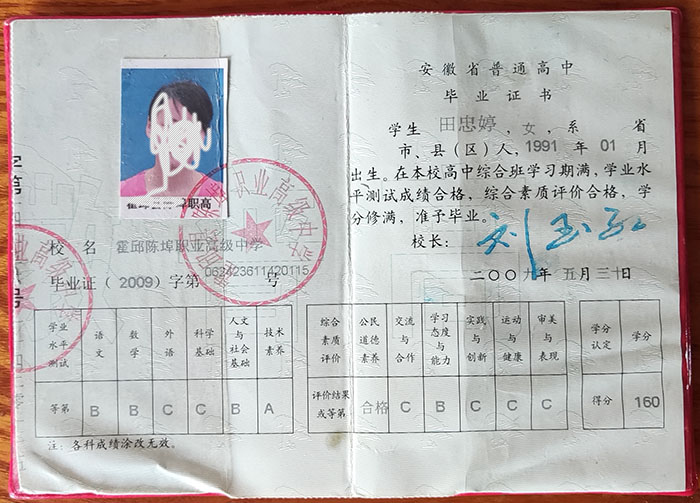 安徽省普通高中
毕业证书
学生 田忠婷 ，女，系 省
市、县（区）人，1991 年 01 月
出生。在本校高中综合班学习期满，学业水
平测试成绩合格，综合素质评价合格，学
分修满，准予毕业。
校长：
二〇〇九年 五月 三十日
职高
校 名 霍邱陈埠职业高级中学
毕业证（2009）字第 062423611420115 号
学业水平测试 语文 数学 外语 科学基础 人文与社会基础 技术素养
等第 B B C C B A
注：各科成绩涂改无效。
综合素质评价 公民道德素养 交流与合作 学习态度与能力 实践与创新 运动与健康 审美与表现
评价结果或等第 合格 C B C C C
学分认定 学分
得分 160